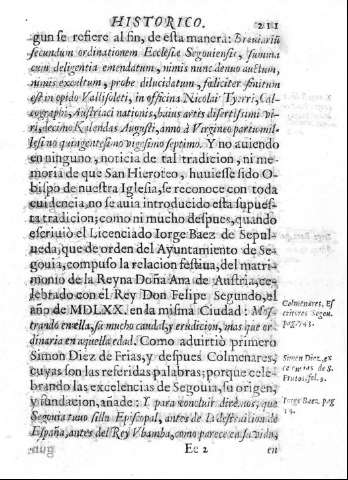 HISTORICO. 211
gun se refiere al fin, de esta manera: Breviariũ
secundum ordinationem Ecclesiæ Segoviensis, summa
cum deligentia emendatum, nimis nunc denuo auctum,
nimis excultum, probe dilucidatum, faliciter finitum
est in opido Vallisoleti, in officina Nicolai Tyerri, Cal-
cographi, Austriaci nationis, huius artis disertisimi vi-
ri, decimo Kalendas Augusti, anno à Virgineo partu mil-
lesi no quingentesi no vigesimo septimo. Y no auiendo
en ninguno, noticia de tal tradicion, ni me-
moria de que San Hieroteo, huuiesse sido O-
bispo de nuestra Iglesia, se reconoce con toda
euidencia, no se auia introducido esta supues-
ta tradicion; como ni mucho despues, quando
escriuiò el Licenciado Iorge Baez de Sepul-
ueda, que de orden del Ayuntamiento de Se-
gouia, compuso la relacion festiua, del matri-
monio de la Reyna Doña Ana de Austria, ce-
lebrado con el Rey Don Felipe Segundo, el
año de MDLXX. en la misma Ciudad: Mos-
trando en ella, su mucho caudal, y erudicion, mas que or-
dinaria en aquella edad. Como aduirtiò primero
Simon Diez de Frias, y despues Colmenares,
cuyas son las referidas palabras; porque cele-
brando las excelencias de Segouia, su origen,
y fundacion, añade: Y para concluir dire nos, que
Segouia tuuo silla Episcopal, antes de la destruicion de
España, antes del Rey Vbamba, como parece en su vida,
Ee 2 en
Colmenares, Es
critores Segou.
pag. 743.
Simon Diez, ex
de S.
Frutos, fol. 5.
Iorge Baez, pag